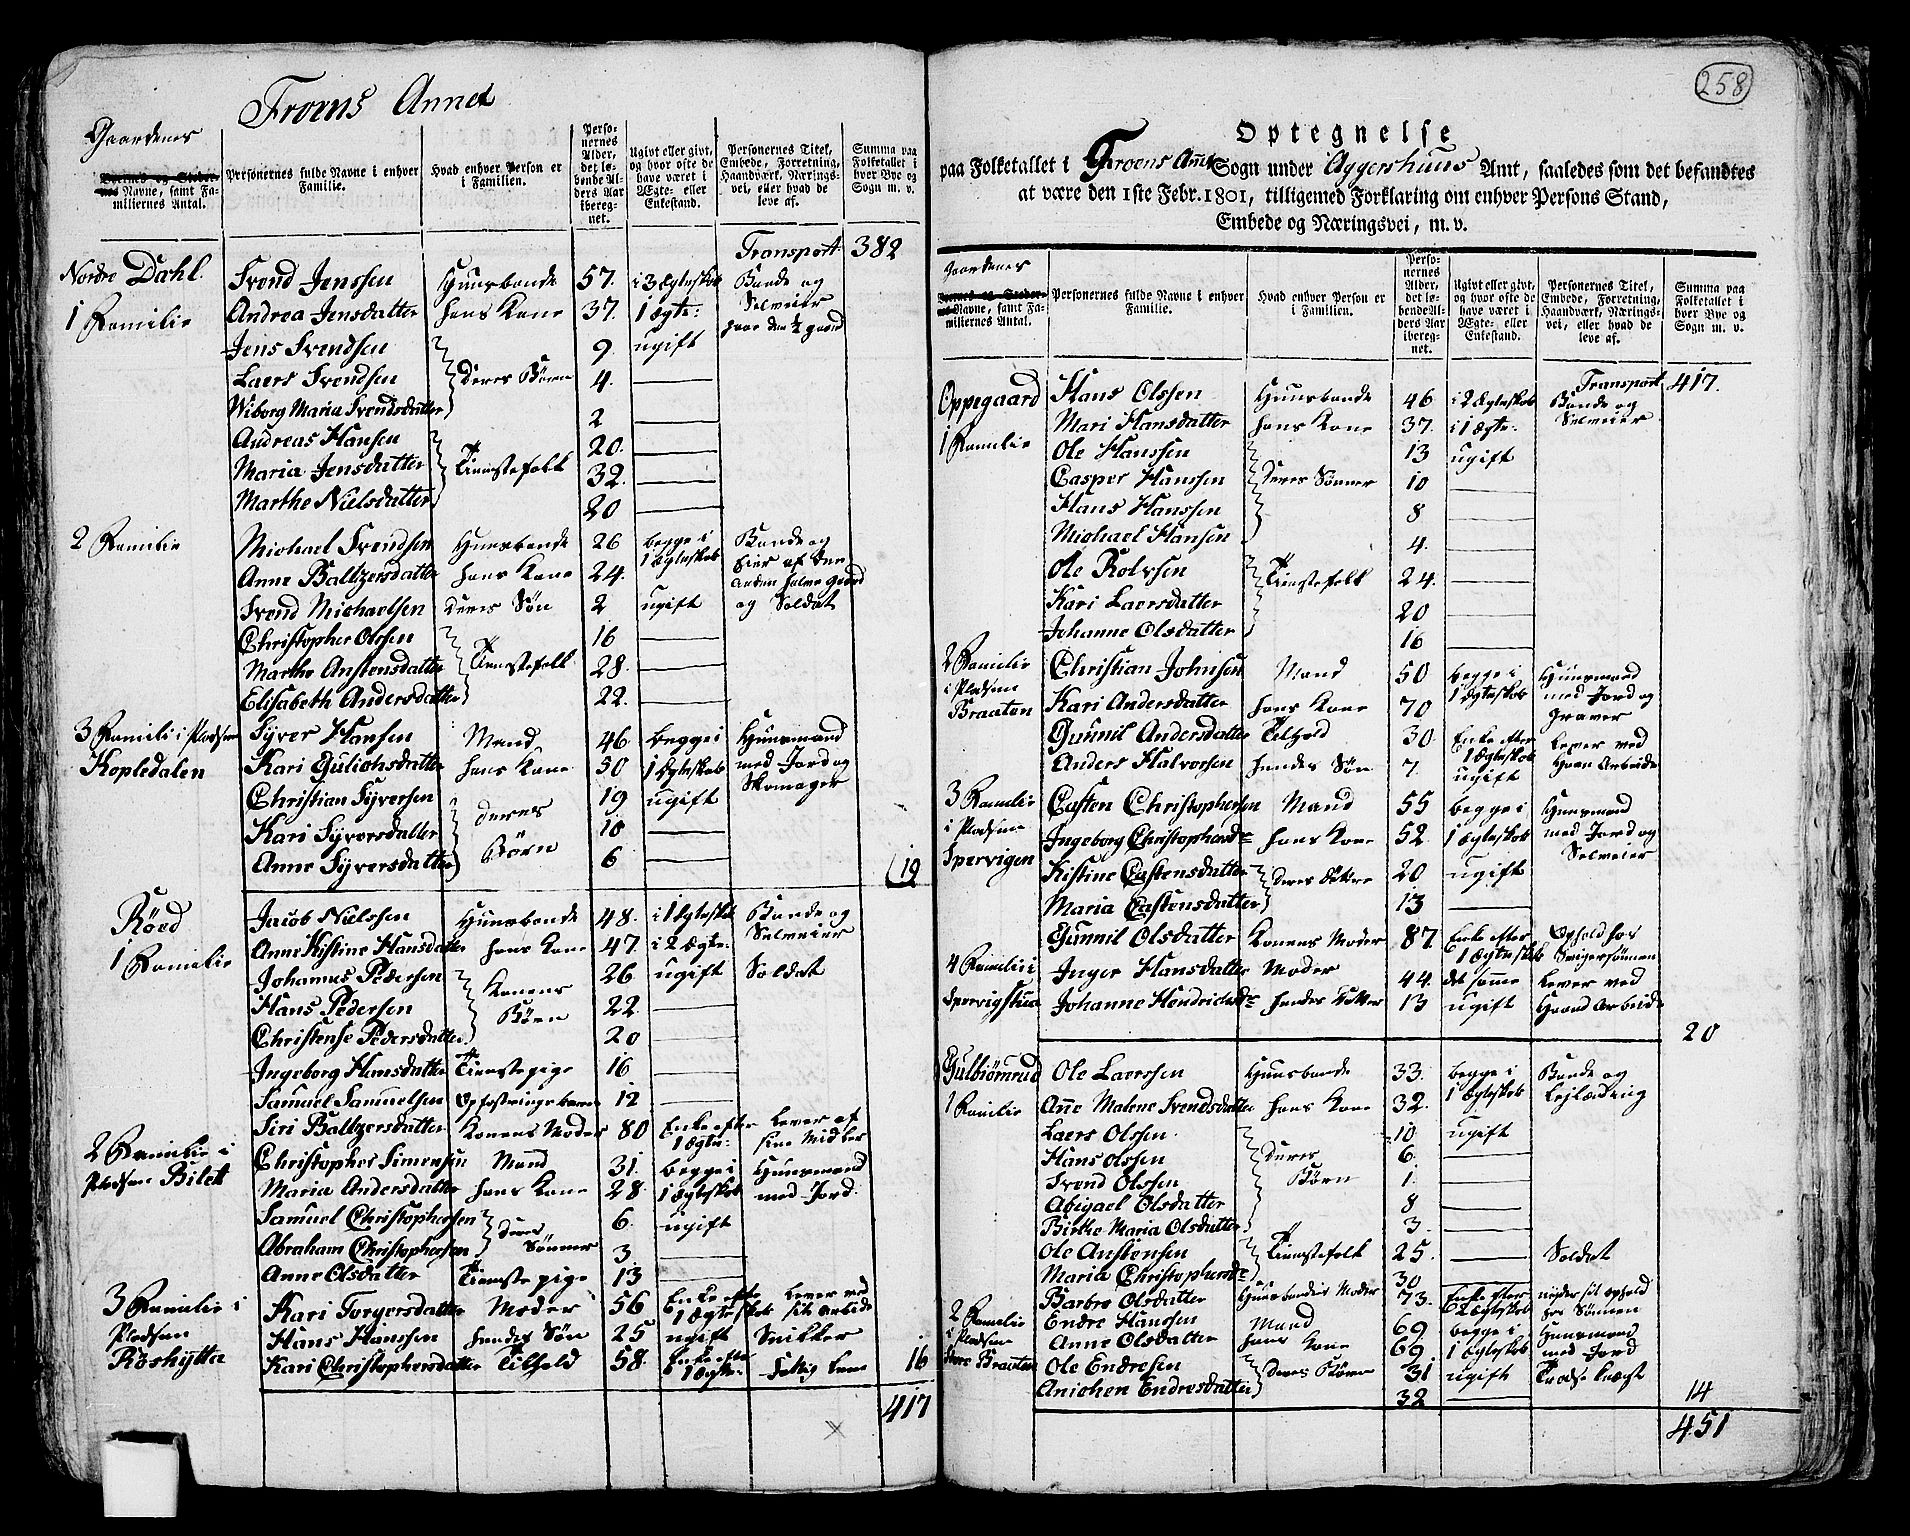 Froens Annex
Gaardenes
Byernes og Stedernes Navne, samt Familiernes Antal.
Personernes fulde Navne i enhver Familie.
Hvad enhver Person er i Familien.
Personernes Alder, det løbende Alders Aar iberegnet.
Ugivt eller givt, og hvor ofte de have været i Ægte- eller Enkestand.
Personernes Titel, Embede, Forretning, Haandværk, Næringsvei, eller hvad de leve af.
Summa paa Folketallet i hver Bye og Sogn m. v.
Transport 382
Nordre Dahl Svend Jenssen Huusbonde 57. i 3 Ægteskab Bonde og
1 Familie Andrea Jensdatter hans Kone 37. 1 ægte- Selveier
Jens Svendsen 9 ugift
Laers Svendsen deres Børn 4.
Wiborg Maria Svendsdatter 2
Andreas Hansen 20.
Maria Jensdatter Tienestefolk 32.
Marthe Nielsdatter 20
2 Familie Michael Svendsen Huusbonde 26 begge i Bonde og
Anne Baltzersdatter hans Kone 24. 1 ægteskab Eier af den anden halve Gaard
Svend Michaelsen deres Søn 2 ugift og Soldat
Christopher Olssen 16
Marthe Anstensdatter Tienestefolk 28.
Elisabeth Andersdatter 22.
3 Familie i Pladsen Syver Hansen Mand 46. begge i Huusmand
Kopledalen Kari Gulichsdatter hans Kone 50 1 ægteskab med Jord og
Christian Syversen 19 ugift Skomager
Kari Syversdatter deres 10
Anne Syversdatter Børn 6
19
Röed Jacob Nielssen Huusbonde 48. i 1 Ægteskab Bonde og
1 Familie Anne Kistine Hansdatter hans Kone 47 i 2 ægte- Selveier
Johannes Pedersen 26 ugift Soldat
Hans Pedersen Konens Børn 22.
Christense Pedersdatter 20
Ingeborg Hansdatter Tienestepige 16
Samuel Samuelsen Opfostringsbarn 12
Siri Baltzersdatter Konens Moder 80 Enke efter 1 ægte- Lever af sine Midler
2 Familie i Christopher Simensen Mand 31. begge i Huusmand
Pladsen Bilet Maria Andersdatter hans Kone 28. 1 ægteskab med Jord.
Samuel Christophersen deres 6. ugift
Abraham Christophersen Sønner 3
Anne Olsdatter Tieneste pige 13
3 Familie i Kari Torgersdatter Moder 56 Enke efter 1 ægteskab Lever ved sit arbeide
Pladsen Hans Hanssen hendes Søn 25 ugift Snikker
Röshytta Kari Christophersdatter Tilhold 58. Enke efter 1 ægte-
16
417
258
Optegnelse
paa Folketallet i Froens Annex Sogn under Aggershuus Amt, saaledes som det befandtes
at være den 1ste Febr. 1801, tilligemed Forklaring om enhver Persons Stand,
Embede og Næringsvei, m. v.
Gaardenes
Byernes og Stedernes Navne, samt Familiernes Antal.
Personernes fulde Navne i enhver Familie.
Hvad enhver Person er i Familien.
Personernes Alder, det løbende Alders Aar iberegnet.
Ugivt eller givt, og hvor ofte de have været i Ægte- eller Enkestand.
Personernes Titel, Embede, Forretning, Haandværk, Næringsvei, eller hvad de leve af.
Summa paa Folketallet i hver Bye og Sogn m. v.
Transport 417.
Oppegaard Hans Olssen Huusbonde 46 i 2 Ægteskab Bonde og
1 Familie Mari Hansdatter hans Kone 37. i 1 ægte- Selveier
Ole Hanssen 13 ugift
Casper Hanssen deres Sønner 10
Hans Hanssen 8
Michael Hansen 4.
Ole Rolvsen Tienestefolk 24.
Kari Laersdatter 20
Johanne Olsdatter 16
2 Familie Christian Johnsen Mand 50 begge i Huusmand
i Pladsen Kari Andersdatter hans Kone 70 1 ægteskab med Jord og
Braaten Gunnil Andersdatter Tilhold 30 Enke efter 1 ægteskab Graver
Anders Halvorsen hendes Søn 7. ugift Lever ved Haan Arbeide
3 Familie Casten Christophersen Mand 55 begge i Huusmand
i Pladsen Ingeborg Christophersdr hans Kone 52. 1 ægteskab med Jord og
Spervigen Kistine Castensdatter deres Døttre 20 ugift Selveier
Maria Castensdatter 13
Gunnil Olsdatter Konens Moder 87. Enke efter 1 ægteskab Ophold hos Svigersønnen
4 Familie i Inger Hansdatter Moder 44. det samme Lever ved
Spervigstua Johanne Hendrichsdr hendes Datter 13 ugift Haand Arbeide
20
Gulbiömrud Ole Laerssen Huusbonde 33. begge i Bonde og
1 Familie Aňe Malene Svendsdatter hans Kone 32. 1 ægteskab Lejlænding
Laers Olssen 10 ugift
Hans Olssen deres 6.
Svend Olssen Børn 1.
Abigael Olsdatter 8
Birthe Maria Olsdatter 3.
Ole Anstensen Tienestefolk 25. Soldat
Maria Christophersdr 30
Barbro Olsdatter Huusbondes Moder 73. Enke efter 2 ægteskab nyder sit ophold hos Sønnen
2 Familie Endre Hanssen Mand 69 begge i Huusmand
i Pladsen Anne Olsdatter hans Kone 69. 1 ægteskab med Jord
Store Braaten Ole Endresen deres Børn 31 ugift
Anichen Endresdatter 32
14
451